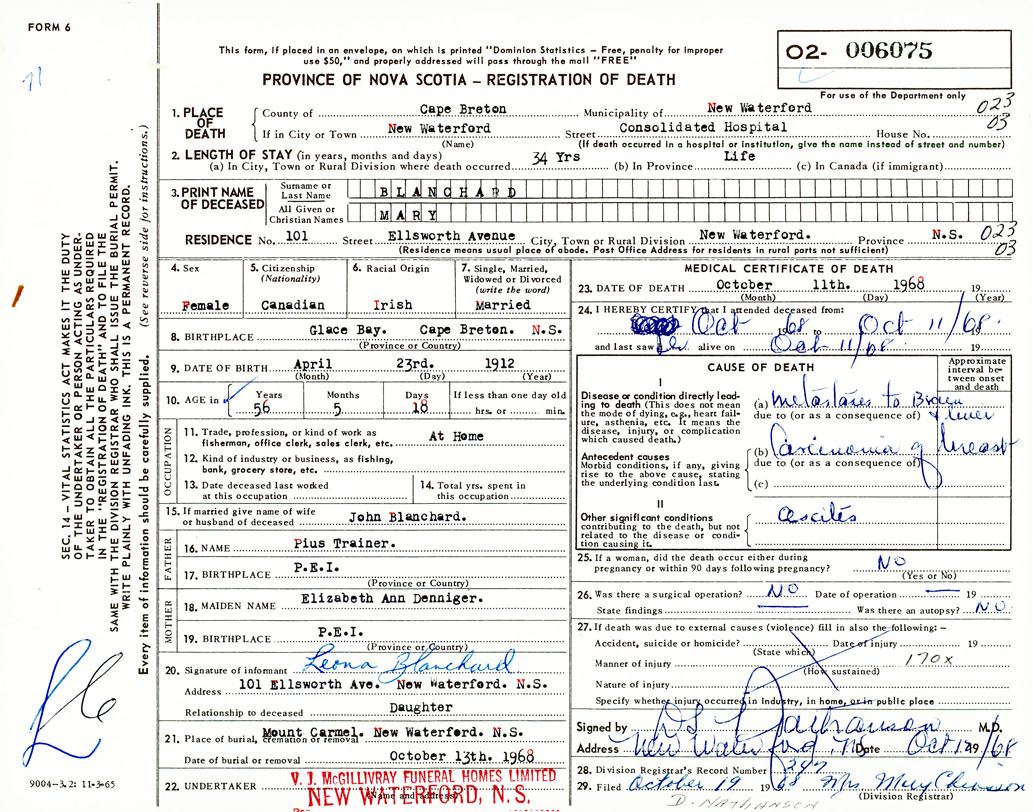 FORM 6
71
This form, if placed in an envelope, on which is printed "Dominion Statistics – Free, penalty for improper
use $50," and properly addressed will pass through the mail "FREE"
PROVINCE OF NOVA SCOTIA – REGISTRATION OF DEATH
02- 006075
For use of the Department only
023
03
1. PLACE OF DEATH
County of Cape Breton Municipality of New Waterford
If in City or Town New Waterford Street Consolidated Hospital House No.
(Name) (If death occurred in a hospital or institution, give the name instead of street and number)
2. LENGTH OF STAY (in years, months and days)
(a) In City, Town or Rural Division where death occurred 34 Yrs (b) In Province Life (c) In Canada (if immigrant)
3. PRINT NAME OF DECEASED
Surname or Last Name BLANCHARD
All Given or Christian Names MARY
RESIDENCE No. 101 Street Ellsworth Avenue City, Town or Rural Division New Waterford. Province N.S. 023
(Residence means usual place of abode. Post Office Address for residents in rural parts not sufficient) 03
4. Sex
Female
5. Citizenship
(Nationality)
Canadian
6. Racial Origin
Irish
7. Single, Married,
Widowed or Divorced
(write the word)
Married
8. BIRTHPLACE Glace Bay. Cape Breton. N.S.
(Province or Country)
9. DATE OF BIRTH April 23rd. 1912
(Month) (Day) (Year)
10. AGE in Years Months Days If less than one day old
56 5 18 hrs. or min.
OCCUPATION
11. Trade, profession, or kind of work as
fisherman, office clerk, sales clerk, etc. At Home
12. Kind of industry or business, as fishing,
bank, grocery store, etc.
13. Date deceased last worked
at this occupation
14. Total yrs. spent in
this occupation
15. If married give name of wife
or husband of deceased John Blanchard.
FATHER
16. NAME Pius Trainer.
17. BIRTHPLACE P.E.I.
(Province or Country)
MOTHER
18. MAIDEN NAME Elizabeth Ann Denniger.
19. BIRTHPLACE P.E.I.
(Province or Country)
20. Signature of informant Leona Blanchard
Address 101 Ellsworth Ave. New Waterford. N.S.
Relationship to deceased Daughter
21. Place of burial, cremation or removal Mount Carmel. New Waterford. N.S.
Date of burial or removal October 13th. 1968
22. UNDERTAKER V. J. McGILLIVRAY FUNERAL HOMES LIMITED
(Name and address)
NEW WATERFORD, N. S.
MEDICAL CERTIFICATE OF DEATH
23. DATE OF DEATH October 11th. 1968 19
(Month) (Day) (Year)
24. I HEREBY CERTIFY that I attended deceased from:
Oct 1968 to Oct 11/68
and last saw her alive on Oct 11/68 19
CAUSE OF DEATH
Approximate
interval be-
tween onset
and death
I
Disease or condition directly lead-
ing to death (This does not mean
the mode of dying, e.g., heart fail-
ure, asthenia, etc. It means the
disease, injury, or complication
which caused death.)
(a) Metastases to Brain
due to (or as a consequence of) & liver
Antecedent causes
Morbid conditions, if any, giving
rise to the above cause, stating
the underlying condition last.
(b) Carcinoma of breast
due to (or as a consequence of)
(c)
II
Other significant conditions
contributing to the death, but not
related to the disease or condi-
tion causing it.
ascites
25. If a woman, did the death occur either during
pregnancy or within 90 days following pregnancy? NO
(Yes or No)
26. Was there a surgical operation? NO Date of operation — 19
State findings — Was there an autopsy? NO
27. If death was due to external causes (violence) fill in also the following: –
Accident, suicide or homicide? Date of injury 19
(State which)
Manner of injury 170X
(How sustained)
Nature of injury
Specify whether injury occurred in Industry, in home, or in public place
Signed by Nathanson M.D.
Address New Waterford, N Date Oct 12 1968
28. Division Registrar's Record Number 247
29. Filed October 19 1968 Mrs. Mary
(Division Registrar)
D. NATHANSON
SEC. 14 – VITAL STATISTICS ACT MAKES IT THE DUTY
OF THE UNDERTAKER OR PERSON ACTING AS UNDER-
TAKER TO OBTAIN ALL THE PARTICULARS REQUIRED
IN THE "REGISTRATION OF DEATH" AND TO FILE THE
SAME WITH THE DIVISION REGISTRAR WHO SHALL ISSUE THE BURIAL PERMIT.
WRITE PLAINLY WITH UNFADING INK. THIS IS A PERMANENT RECORD.
Every item of information should be carefully supplied. (See reverse side for instructions.)
9004–3.2: 11-3-65